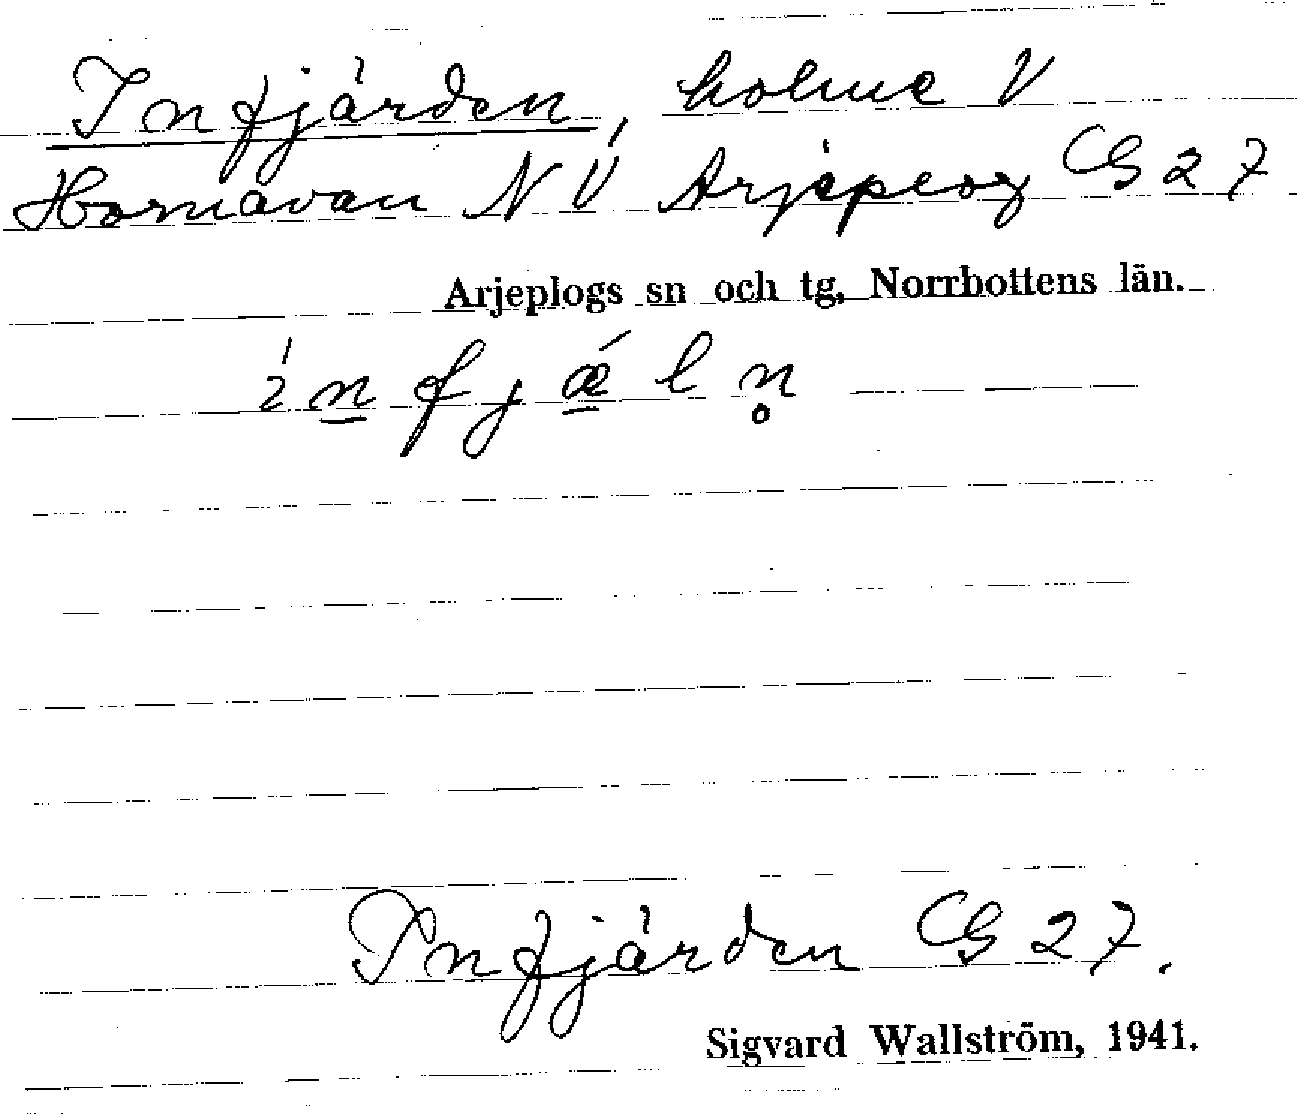 Infjärden, holme V
Hornavan NV Arjeplog GS 27
Arjeplogs sn och tg, Norrbottens län.
ínfjǽln̥
Infjärden GS 27.
Sigvard Wallström, 1941.